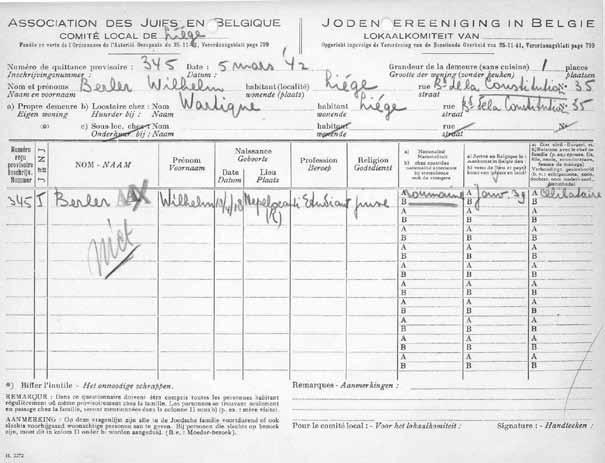 ASSOCIATION DES JUIFS EN BELGIQUE
COMITÉ LOCAL DE Liége
Fondée en vertu de l'Ordonnance de l'Autorité Occupante du 25-11-41, Verordnungsblatt page 799
JODENVEREENIGING IN BELGIE
LOKAALKOMITEIT VAN
Opgericht ingevolge de Verordening van de Bezettende Overheid van 25-11-41, Verordnungsblatt page 799
Numéro de quittance provisoire : 345 Date : 5 mars '42 Grandeur de la demeure (sans cuisine) : 1 places
Inschrijvingsnummer : Datum : Grootte der woning (zonder keuken) plaatsen
Nom et prénoms Berler Wilhelm habitant (localité) Liége rue Bd de la Constitution No. 35
Naam en voornaam wonende (plaats) straat
a) Propre demeure b) Locataire chez : Nom Wartique habitant Liége rue Bd de la Constitution 35
Eigen woning Huurder bij : Naam wonende straat
c) Sous-loc. chez : Nom habitant rue No.
Onderhuur. bij : Naam wonende straat
Numéro reçu provisoire
Inschrijv. Nummer
NOM - NAAM
Prénom
Voornaam
Naissance
Geboorte
Date
Datum
Lieu
Plaats
Profession
Beroep
Religion
Godsdienst
a) Nationalité
Nationaliteit
345 I Berler Wilhelm Etudiant juive A Roumaine A Janv. 39 A Célibataire
B B B
niet
A A A
B B B
A A A
B B B
A A A
B B B
A A A
B B B
A A A
B B B
A A A
B B B
A A A
B B B
*) Biffer l'inutile - Het onnoodige schrappen.
Remarques - Aanmerkingen :
REMARQUE : Dans ce questionnaire doivent être compris toutes les personnes habitant
régulièrement où même provisoirement chez la famille. Les personnes se trouvant seulement
en passage chez la famille, seront mentionnées dans la colonne 11 sous b) (p. ex. : mère visite).
AANMERKING : Op deze vragenlijst zijn alle in de Joodsche familie voortdurend of ook
slechts voorbijgaand woonachtige personen aan te geven. Bij personen die slechts op bezoek
zijn, moet dit in kolom 11 onder b) worden aangeduid. (B.v. : Moeder-bezoek).
Pour le comité local : - Voor het lokaalkomiteit : Signature : - Handteeken :